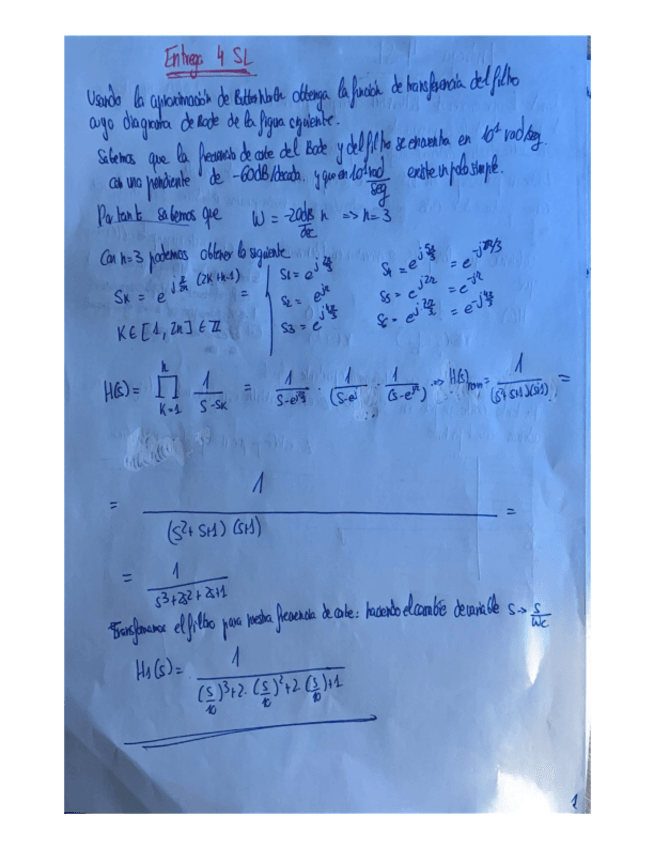 Entrega 4 SL
Usando la aproximación de Butterworth obtenga la función de transferencia del filtro
cuyo diagrama de Bode de la figura siguiente.
Sabemos que la frecuencia de corte del Bode y del filtro se encuentra en 10¹ rad/seg.
con una pendiente de -60dB/decada. y que en 10¹ rad/seg existe un polo simple.
Por tanto sabemos que W = -20dB/dec n => n=3
Con n=3 podemos obtener lo siguiente
S_K = e^{j π/2n (2K+n-1)} =
K ∈ [1, 2n] ∈ Z
S1 = e^{j 2π/3} S4 = e^{j 5π/3} = e^{-jπ/3}
S2 = e^{jπ} S5 = e^{j2π} = e^{-jπ}
S3 = e^{j 4π/3}
H(s) = ∏_{K=1}^{n} 1/(S-S_K) =
= 1/((S²+S+1)(S+1)) =
= 1/(S³+2S²+2S+1)
Transformamos el filtro para nuestra frecuencia de corte: haciendo el cambio de variable S → S/Wc
H1(s) = 1/((S/10)³+2·(S/10)²+2·(S/10)+1)
1